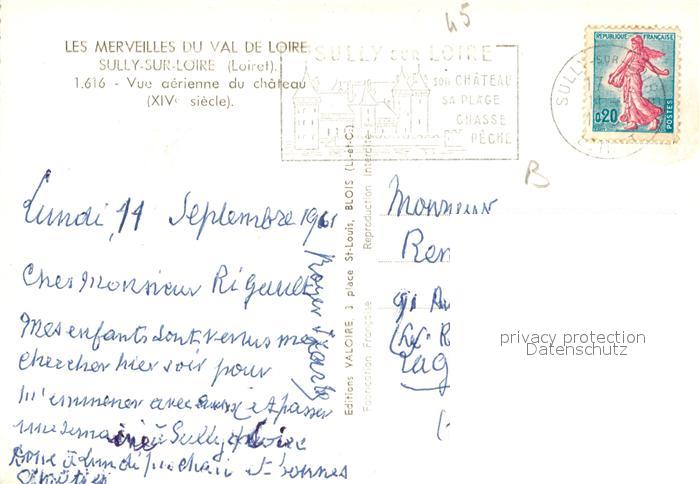 45
LES MERVEILLES DU VAL DE LOIRE
SULLY-SUR-LOIRE (Loiret).
1.616 - Vue aérienne du château
(XIVe siècle).
SULLY SUR LOIRE
son CHÂTEAU
SA PLAGE
CHASSE
PÊCHE
SULLY SUR LOIRE
RÉPUBLIQUE FRANÇAISE
0,20
POSTES
B
Lundi, 11 Septembre 1961
Cher Monsieur Rigault
Mes enfants sont venus me
chercher hier soir pour
m'emmener avec eux et passer
une semaine à Sully s/ Loire
Donc à Lundi prochain et bonnes
amitiés
Editions VALOIRE, 3 place St-Louis, BLOIS (L.-et-C.)
Fabrication Française Reproduction interdite
Monsieur
Ren
privacy protection
Datenschutz